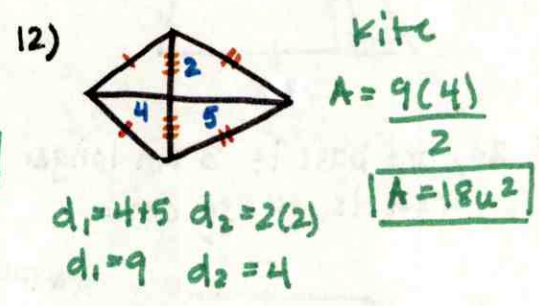 12)
2
4 5
Kite
A = 9(4)
2
A = 18u²
d₁=4+5 d₂=2(2)
d₁=9 d₂=4